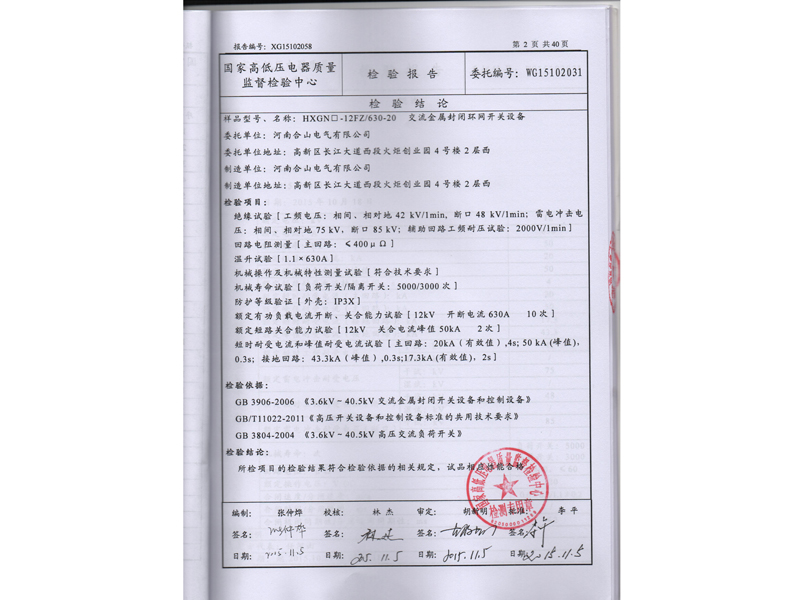 报告编号: XG15102058
第 2 页 共40页
国家高低压电器质量
监督检验中心
检 验 报 告
委托编号: WG15102031
检 验 结 论
样品型号、名称: HXGN□-12FZ/630-20 交流金属封闭环网开关设备
委托单位: 河南合山电气有限公司
委托单位地址: 高新区长江大道西段火炬创业园 4 号楼 2 层西
制造单位: 河南合山电气有限公司
制造单位地址: 高新区长江大道西段火炬创业园 4 号楼 2 层西
检验项目:
绝缘试验 [ 工频电压: 相间、相对地 42 kV/1min, 断口 48 kV/1min; 雷电冲击电
压: 相间、相对地 75 kV, 断口 85 kV; 辅助回路工频耐压试验: 2000V/1min ]
回路电阻测量 [ 主回路: ≤400μΩ ]
温升试验 [ 1.1×630A ]
机械操作及机械特性测量试验 [ 符合技术要求 ]
机械寿命试验 [ 负荷开关/隔离开关: 5000/3000 次 ]
防护等级验证 [ 外壳: IP3X ]
额定有功负载电流开断、关合能力试验 [ 12kV 开断电流 630A 10 次 ]
额定短路关合能力试验 [ 12kV 关合电流峰值 50kA 2 次 ]
短时耐受电流和峰值耐受电流试验 [ 主回路: 20kA (有效值) ,4s; 50 kA (峰值),
0.3s; 接地回路: 43.3kA (峰值) ,0.3s;17.3kA (有效值), 2s ]
检验依据:
GB 3906-2006 《3.6kV－40.5kV 交流金属封闭开关设备和控制设备》
GB/T11022-2011《高压开关设备和控制设备标准的共用技术要求》
GB 3804-2004 《3.6kV－40.5kV 高压交流负荷开关》
检验结论:
所检项目的检验结果符合检验依据的相关规定, 试品相应性能合格
国家高低压电器质量监督检验中心
检测专用章
编制: 张仲烨 校核: 林 杰 审定: 胡新明 批准: 李 平
签名: 签名: 签名: 签名:
日期: 2015.11.5 日期: 2015. 11. 5 日期: 2015.11.5 日期: 2015.11.5